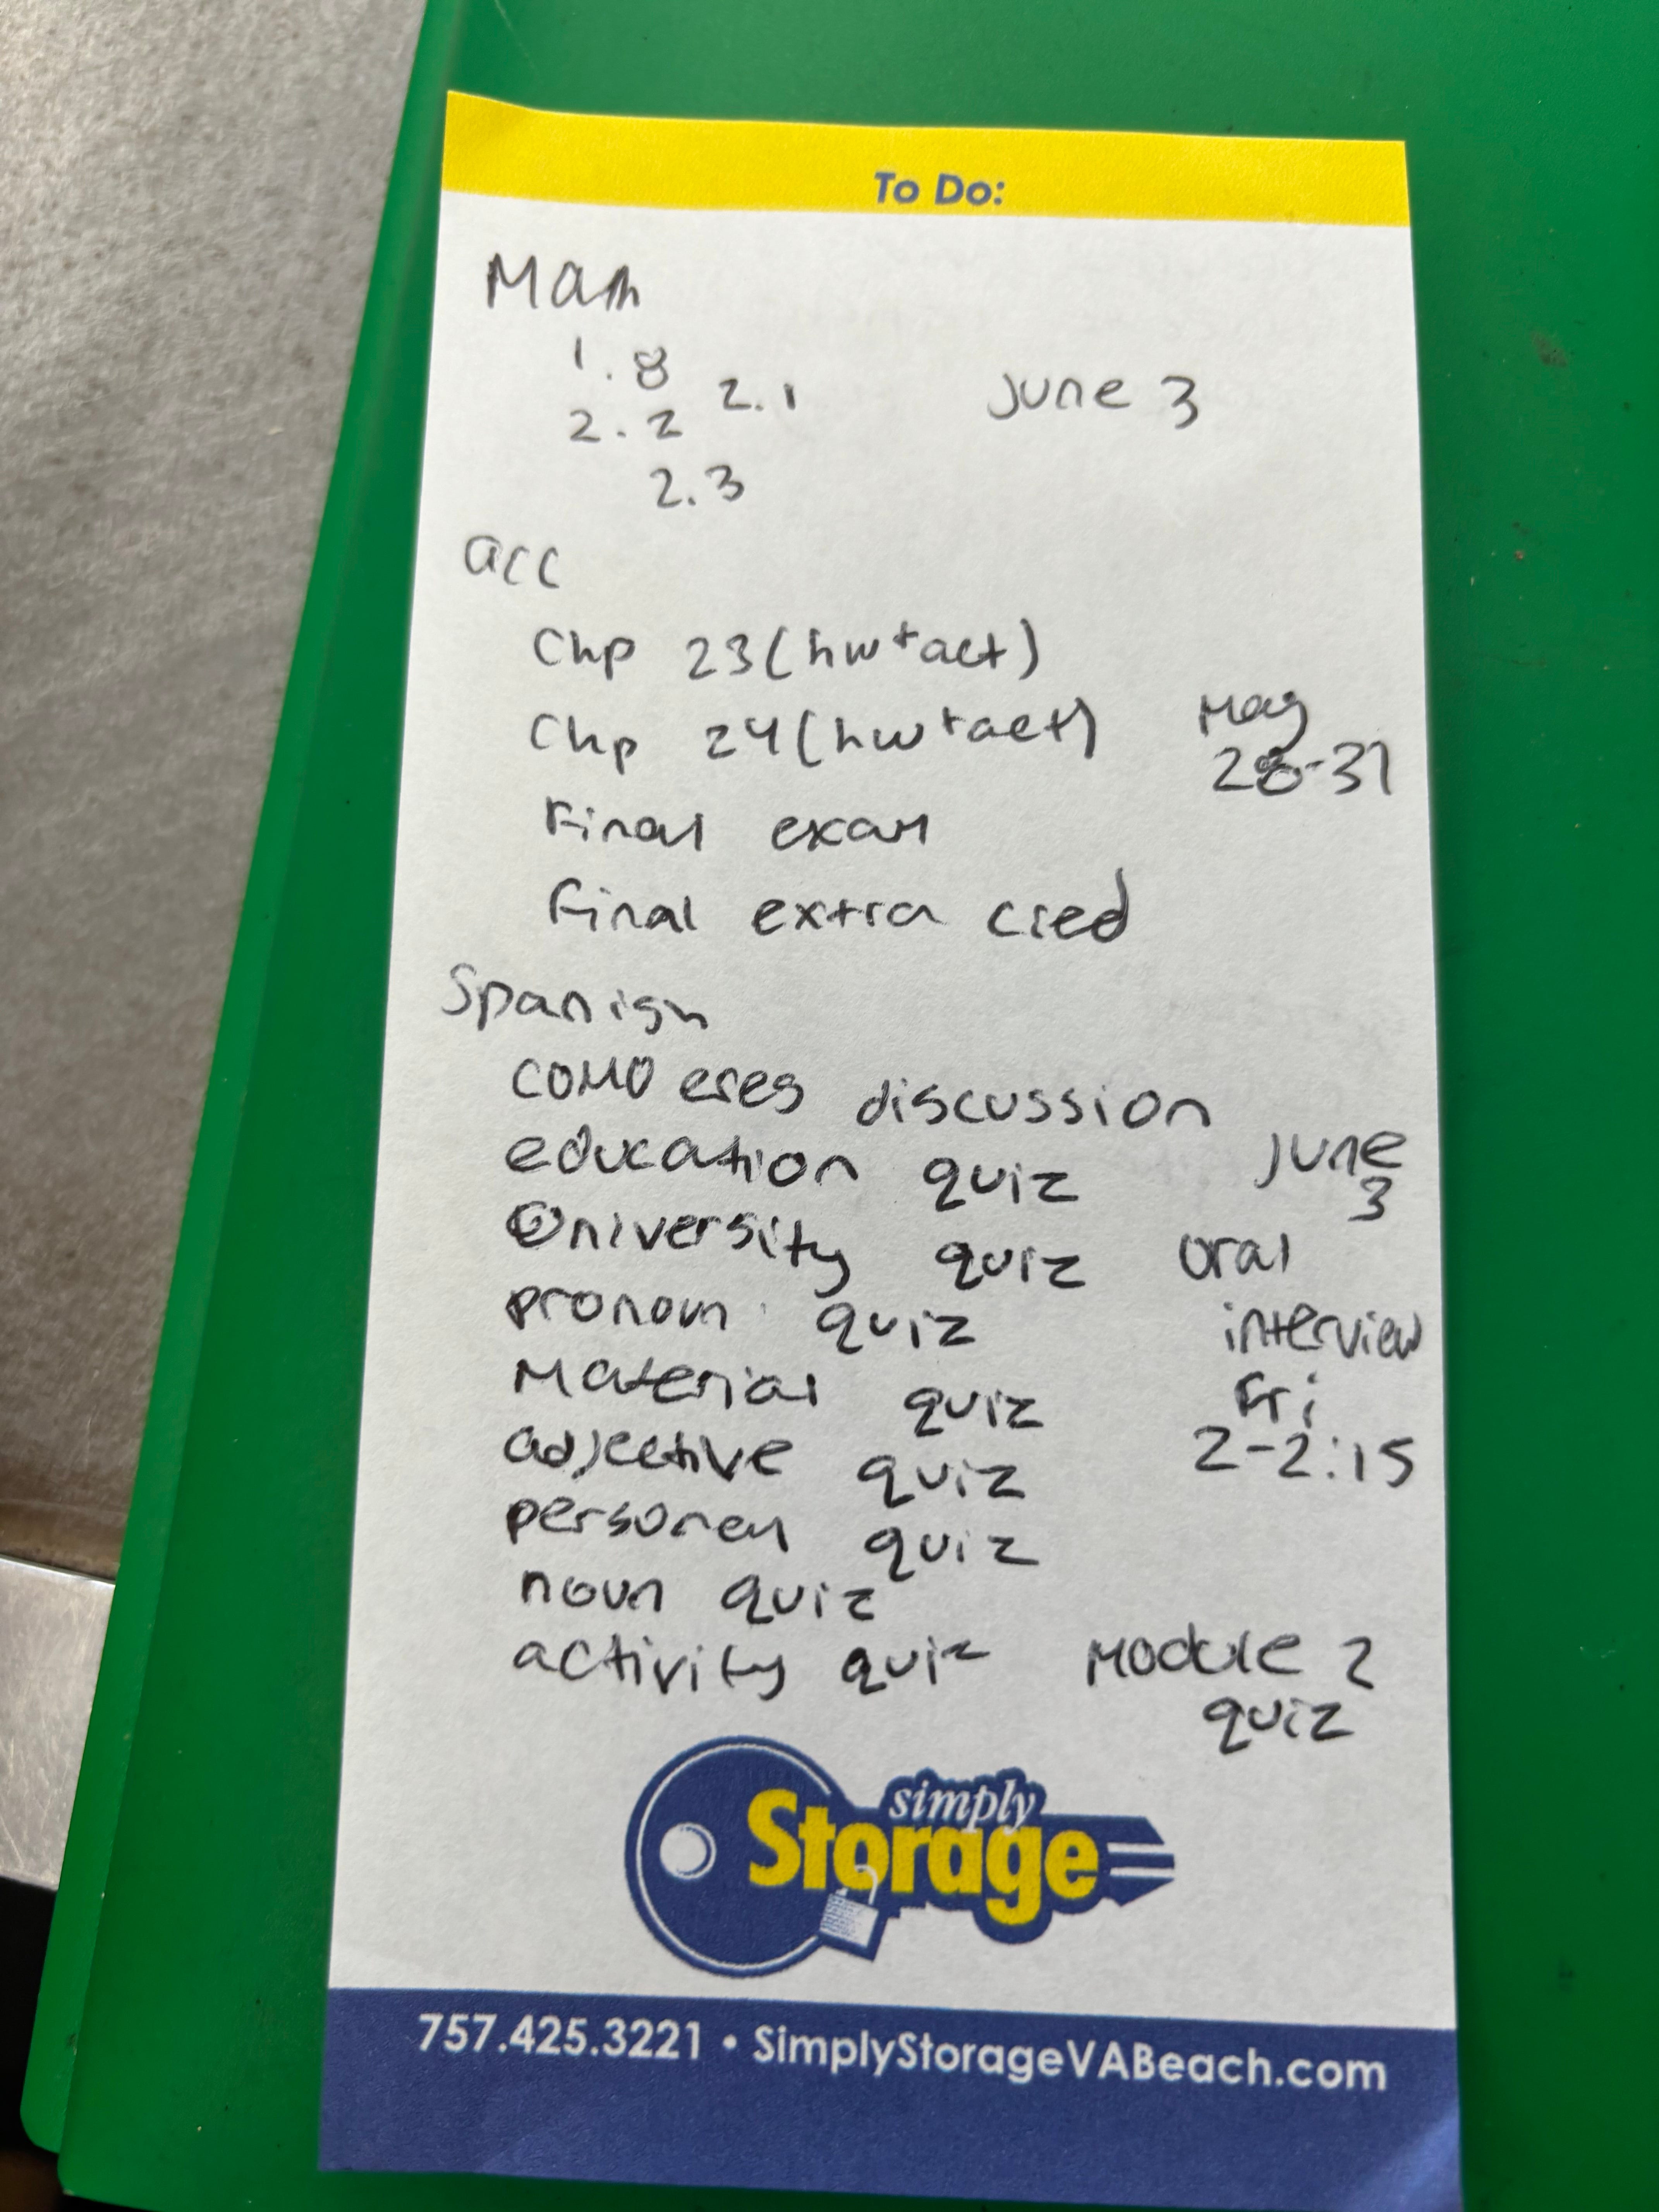 To Do:
Math
1.8
2.1 June 3
2.2
2.3
acc
Chp 23 (hw+act)
Chp 24 (hw+act) May
28-31
Final exam
Final extra cred
Spanish
como eres discussion
education quiz June
3
University quiz oral
pronoun quiz interview
Material quiz Fri
adjective quiz 2-2:15
quiz
noun quiz
activity quiz Module 2
quiz
simply
Storage
757.425.3221 • SimplyStorageVABeach.com